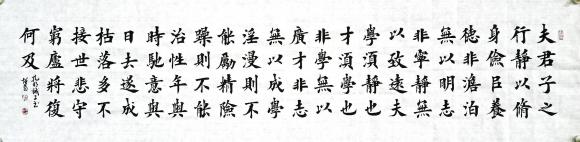 夫君子之
行靜以脩
身儉㠯養
德非澹泊
無以明志
非寧靜無
以致遠夫
學須靜也
才須學也
學非無以
廣才非志
無以成學
淫漫則不
能勵精險
躁則不能
治性年與
時馳意與
日去遂成
枯落多不
接世悲守
窮廬將復
何及
孔明誡子書